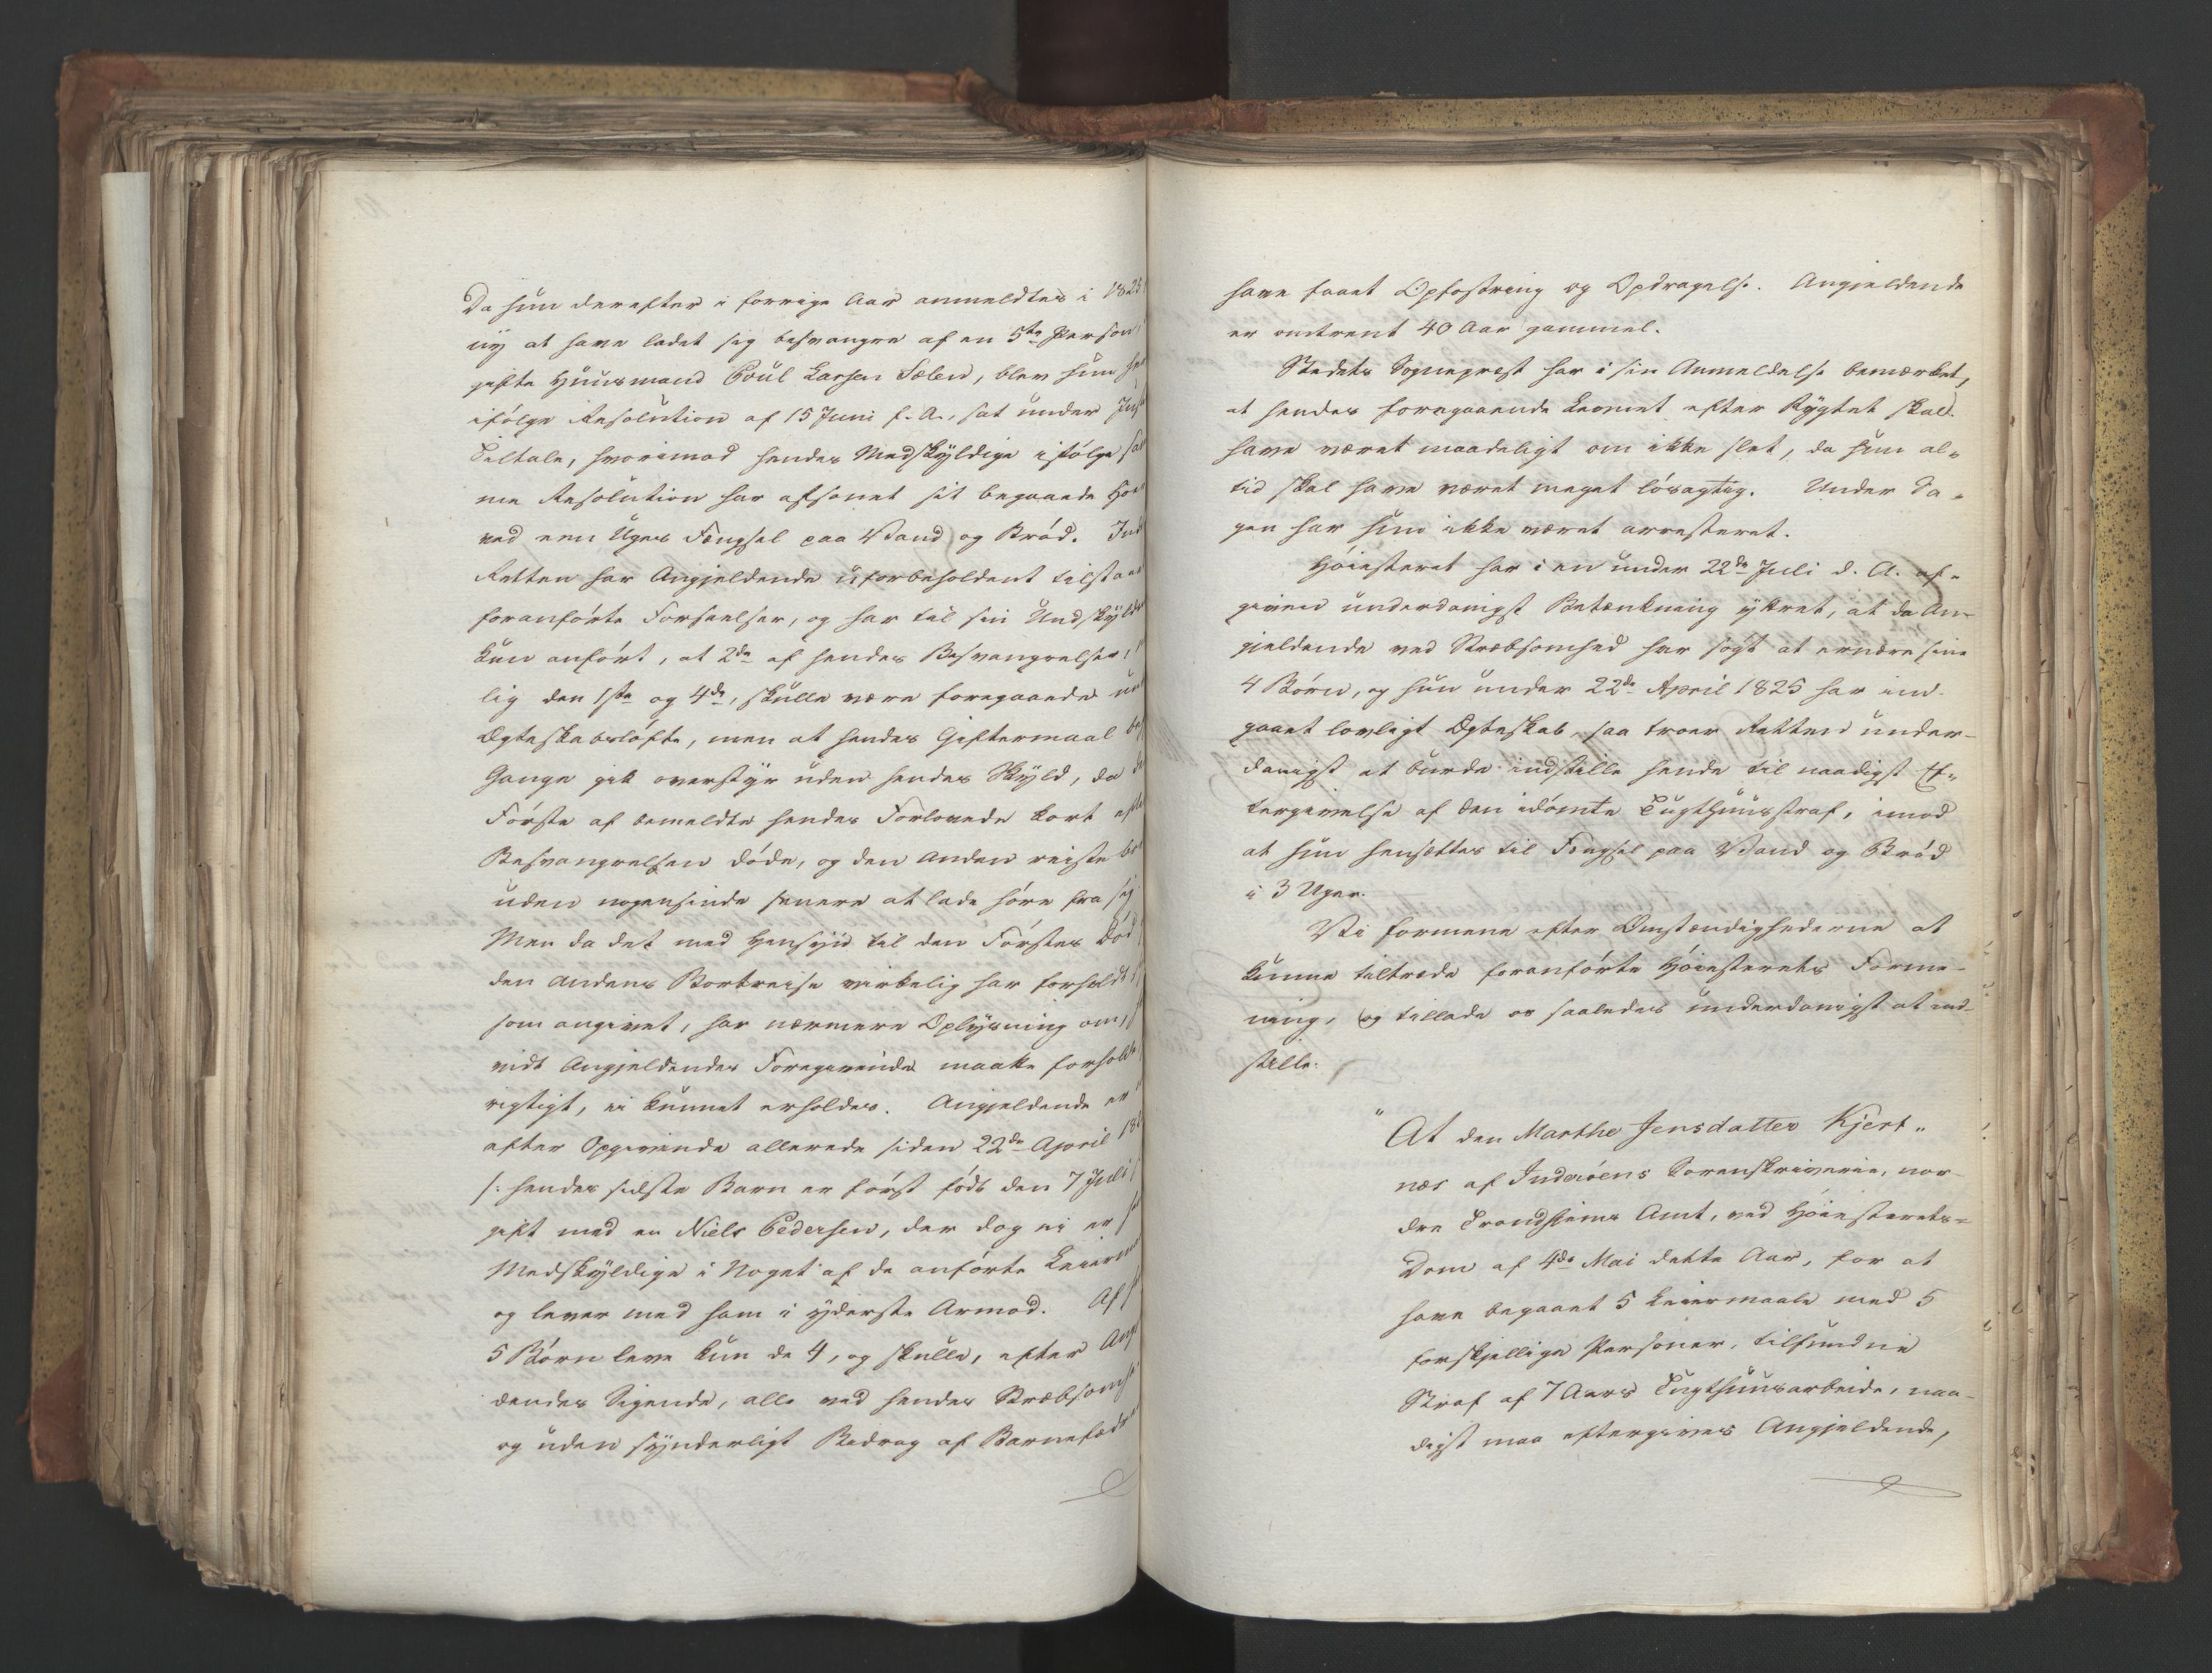 Da hun derefter i forrige Aar anmeldtes i
ny at have ladet sig besvangre af en 5te Person,
gifte Huusmand Poul Larsen Sælen, blev hun
ifölge Resolution af 15 Juni f. A., sat under
Tiltale, hvorimod hendes Medskyldige ifölge
me Resolution har afsonet sit begaaede
ved een Uges Fængsel paa Vand og Bröd.
Retten har Angjeldende uforbeholdent
foranförte Forseelser, og har til sin
kun anfört, at 2de af hendes Besvangrelser,
lig den 1ste og 4de, skulle være foregaaede
Ægteskabslöfte, men at hendes Giftermaal
Gange gik overstyr uden hendes Skyld, da
Förste af bemeldte hendes Forlovede kort
Besvangrelsen döde, og den Anden reiste
uden nogensinde senere at lade höre fra sig
Men da det med Hensyn til den Förstes Död
den Andens Bortreise virkelig har
som angivet, har nærmere Oplysning om,
vidt Angjeldendes Foregivende maatte
rigtigt, ei kunnet erholdes. Angjeldende er
efter Opgivende allerede siden 22de April
/: hendes sidste Barn er först födt den 7 Juli
gift med en Niels Pedersen, der dog ei er
Medskyldige i Noget af de anförte
og lever med ham i yderste Armod. Af
5 Börn leve kun de 4, og skulle, efter
dendes Sigende, alle ved hendes
og uden synderligt Bidrag af
have faaet Opfostring og Opdragelse. Angjeldende
er omtrent 40 Aar gammel.
Stedets Sogneprest har i sin Anmeldelse bemærket,
at hendes foregaaende Levnet efter Rygtet skal
have været maadeligt om ikke slet, da hun al-
tid skal have været meget lösagtig. Under Sa-
gen har hun ikke været arresteret.
Höiesteret har i en under 22de Juli d. A. af-
given underdanigst Betænkning yttret, at da An-
gjeldende ved Stræbsomhed har sögt at ernære sine
4 Börn, og hun under 22de April 1825 har ind-
gaaet lovligt Ægteskab, saa troer Retten under-
danigst at burde indstille hende til naadigst Ef-
tergivelse af den idömte Tugthuusstraf, imod
at hun hensættes til Fængsel paa Vand og Bröd
i 3 Uger.
Vi formene efter Omstændighederne at
kunne tiltræde foranförte Höiesterets Forme-
ning, og tillade os saaledes underdanigst at ind-
stille:
"At den Marthe Jensdatter Kjert-
næs af Inderöens Sorenskriverie, nor-
dre Trondhjems Amt, ved Höiesterets-
Dom af 4de Mai dette Aar, for at
have begaaet 5 Leiermaale med 5
forskjellige Personer, tilfundne
Straf af 7 Aars Tugthuusarbeide, naa-
digst maa eftergives Angjeldende,